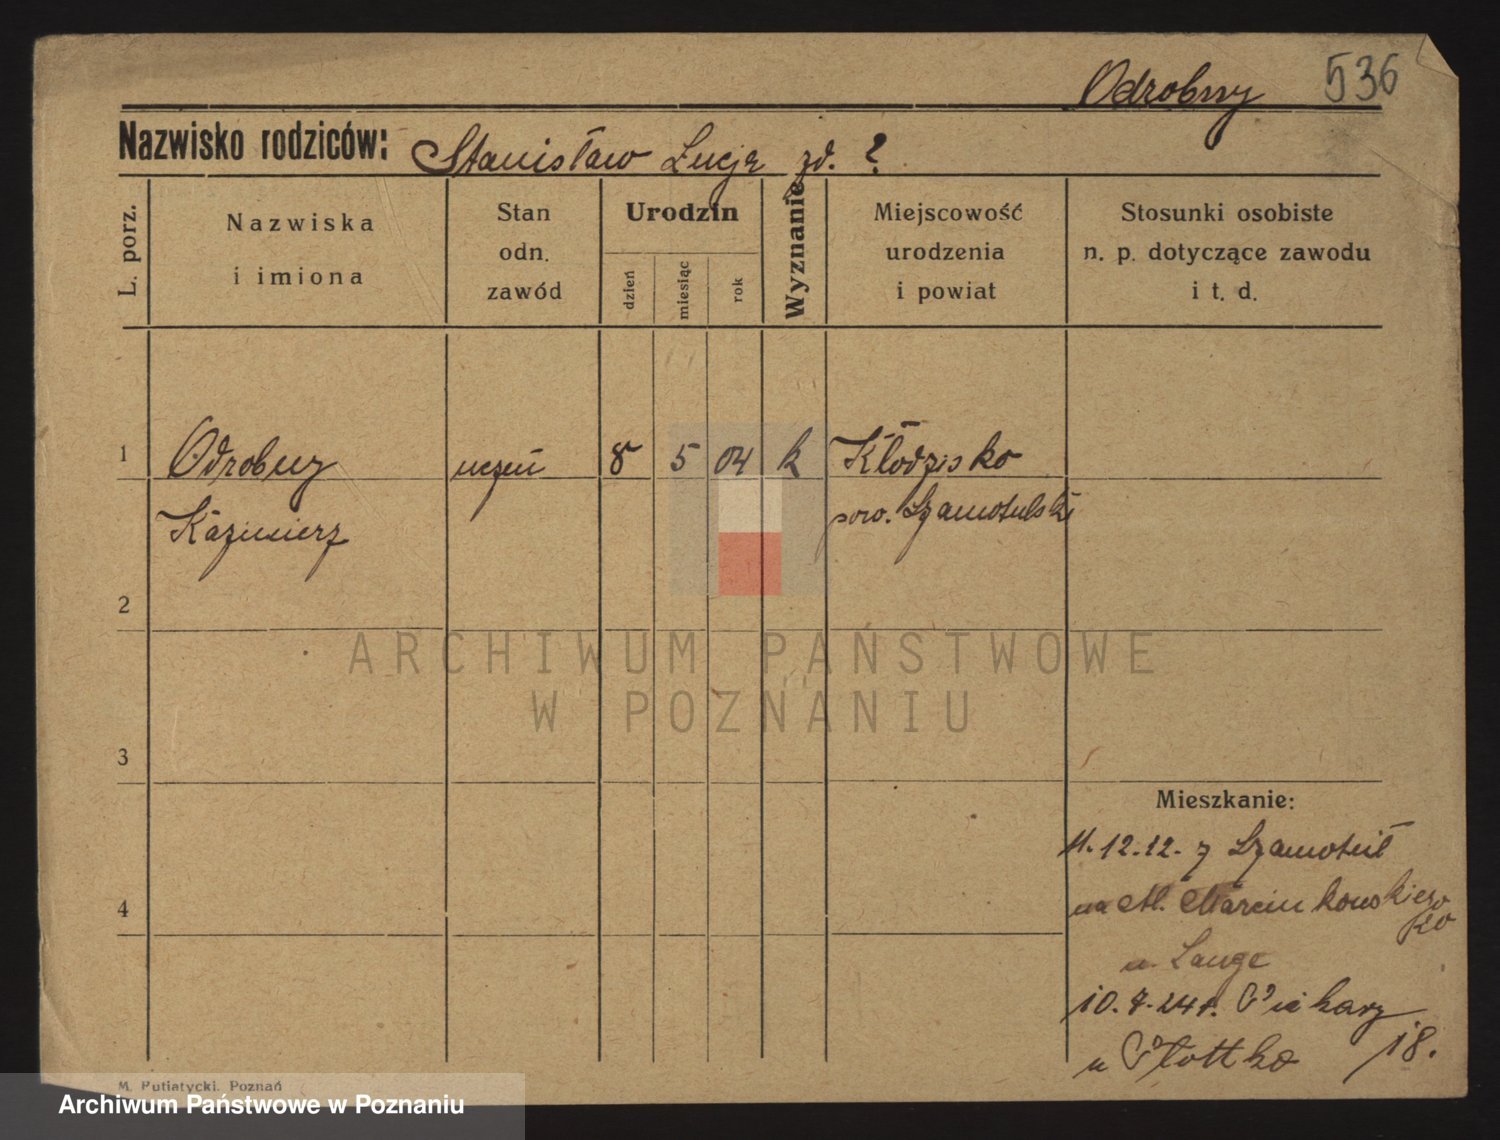 Odrobny 536
Nazwisko rodziców: Stanisław Łucja zd. ?
L. porz.
Nazwiska
i imiona
Stan
odn.
zawód
Urodzin
dzień
miesiąc
rok
Wyznanie
Miejscowość
urodzenia
i powiat
Stosunki osobiste
n. p. dotyczące zawodu
i t. d.
1 Odrobny uczeń 8 5 04 k Kłodzisko
Kazimierz pow. Szamotulski
2
ARCHIWUM PAŃSTWOWE
W POZNANIU
3
Mieszkanie:
11.12.12. z Szamotuł
4
na Al. Marcinkowskiego
20
u. Lange
10.7.24r. Piekary
18.
u
M. Putiatycki. Poznań
Archiwum Państwowe w Poznaniu